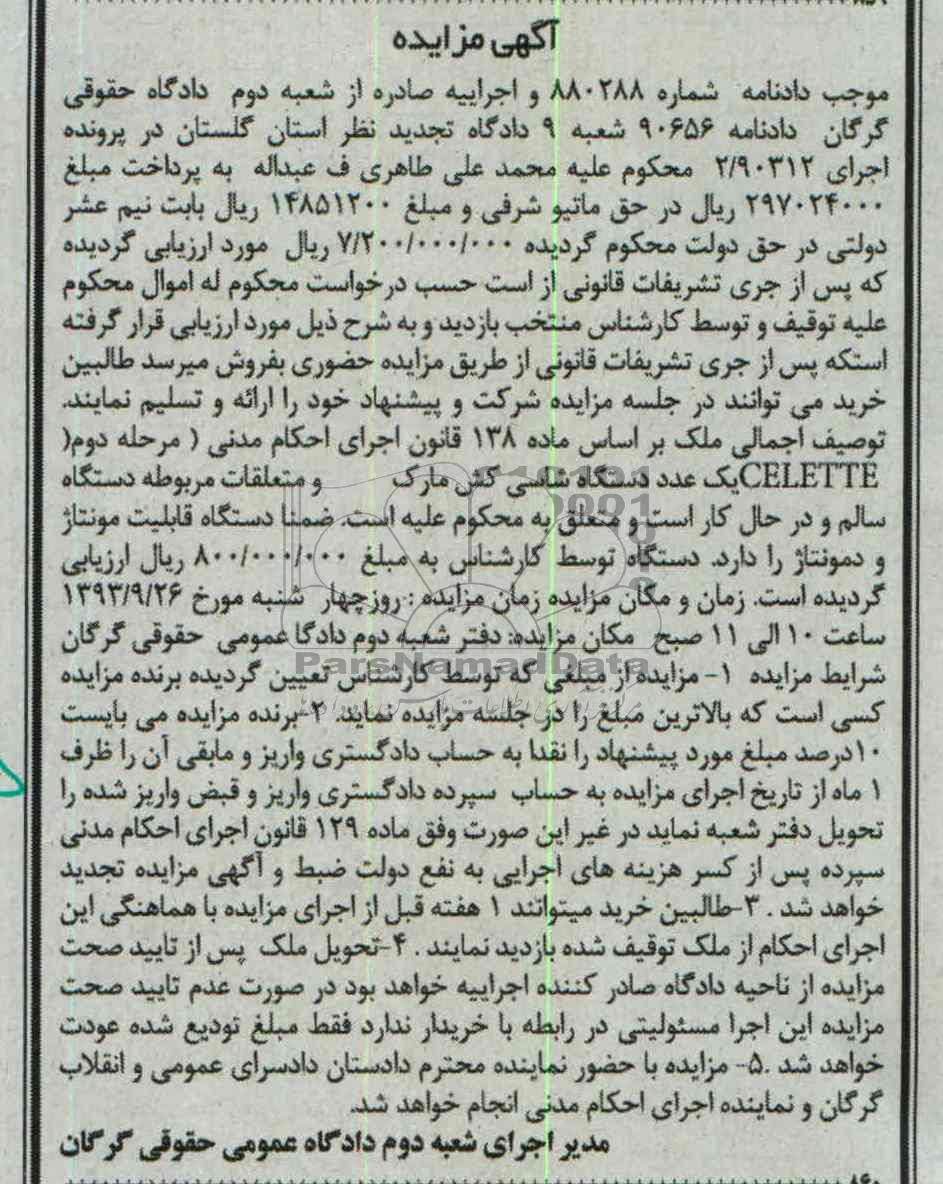 آگهی مزایده
موجب دادنامه شماره ۸۸۰۲۸۸ و اجراییه صادره از شعبه دوم دادگاه حقوقی
گرگان دادنامه ۹۰۶۵۶ شعبه ۹ دادگاه تجدید نظر استان گلستان در پرونده
اجرای ۲/۹۰۳۱۲ محکوم علیه محمد علی طاهری ف عبداله به پرداخت مبلغ
۲۹۷۰۲۴۰۰۰ ریال در حق ماتیو شرفی و مبلغ ۱۴۸۵۱۲۰۰ ریال بابت نیم عشر
دولتی در حق دولت محکوم گردیده ۷/۲۰۰/۰۰۰/۰۰۰ ریال مورد ارزیابی گردیده
که پس از جری تشریفات قانونی از است حسب درخواست محکوم له اموال محکوم
علیه توقیف و توسط کارشناس منتخب بازدید و به شرح ذیل مورد ارزیابی قرار گرفته
استکه پس از جری تشریفات قانونی از طریق مزایده حضوری بفروش میرسد طالبین
خرید می توانند در جلسه مزایده شرکت و پیشنهاد خود را ارائه و تسلیم نمایند.
توصیف اجمالی ملک بر اساس ماده ۱۳۸ قانون اجرای احکام مدنی ( مرحله دوم(
CELETTEیک عدد دستگاه شاسی کش مارک و متعلقات مربوطه دستگاه
سالم و در حال کار است و متعلق به محکوم علیه است. ضمنا دستگاه قابلیت مونتاژ
و دمونتاژ را دارد. دستگاه توسط کارشناس به مبلغ ۸۰۰/۰۰۰/۰۰۰ ریال ارزیابی
گردیده است. زمان و مکان مزایده زمان مزایده : روزچهار شنبه مورخ ۱۳۹۳/۹/۲۶
ساعت ۱۰ الی ۱۱ صبح مکان مزایده: دفتر شعبه دوم دادگا عمومی حقوقی گرگان
شرایط مزایده ۱- مزایده از مبلغی که توسط کارشناس تعیین گردیده برنده مزایده
کسی است که بالاترین مبلغ را در جلسه مزایده نماید. ۲-برنده مزایده می بایست
۱۰درصد مبلغ مورد پیشنهاد را نقدا به حساب دادگستری واریز و مابقی آن را ظرف
۱ ماه از تاریخ اجرای مزایده به حساب سپرده دادگستری واریز و قبض واریز شده را
تحویل دفتر شعبه نماید در غیر این صورت وفق ماده ۱۲۹ قانون اجرای احکام مدنی
سپرده پس از کسر هزینه های اجرایی به نفع دولت ضبط و آگهی مزایده تجدید
خواهد شد . ۳-طالبین خرید میتوانند ۱ هفته قبل از اجرای مزایده با هماهنگی این
اجرای احکام از ملک توقیف شده بازدید نمایند . ۴-تحویل ملک پس از تایید صحت
مزایده از ناحیه دادگاه صادر کننده اجراییه خواهد بود در صورت عدم تایید صحت
مزایده این اجرا مسئولیتی در رابطه با خریدار ندارد فقط مبلغ تودیع شده عودت
خواهد شد .۵- مزایده با حضور نماینده محترم دادستان دادسرای عمومی و انقلاب
گرگان و نماینده اجرای احکام مدنی انجام خواهد شد.
مدیر اجرای شعبه دوم دادگاه عمومی حقوقی گرگان
ParsNamadData